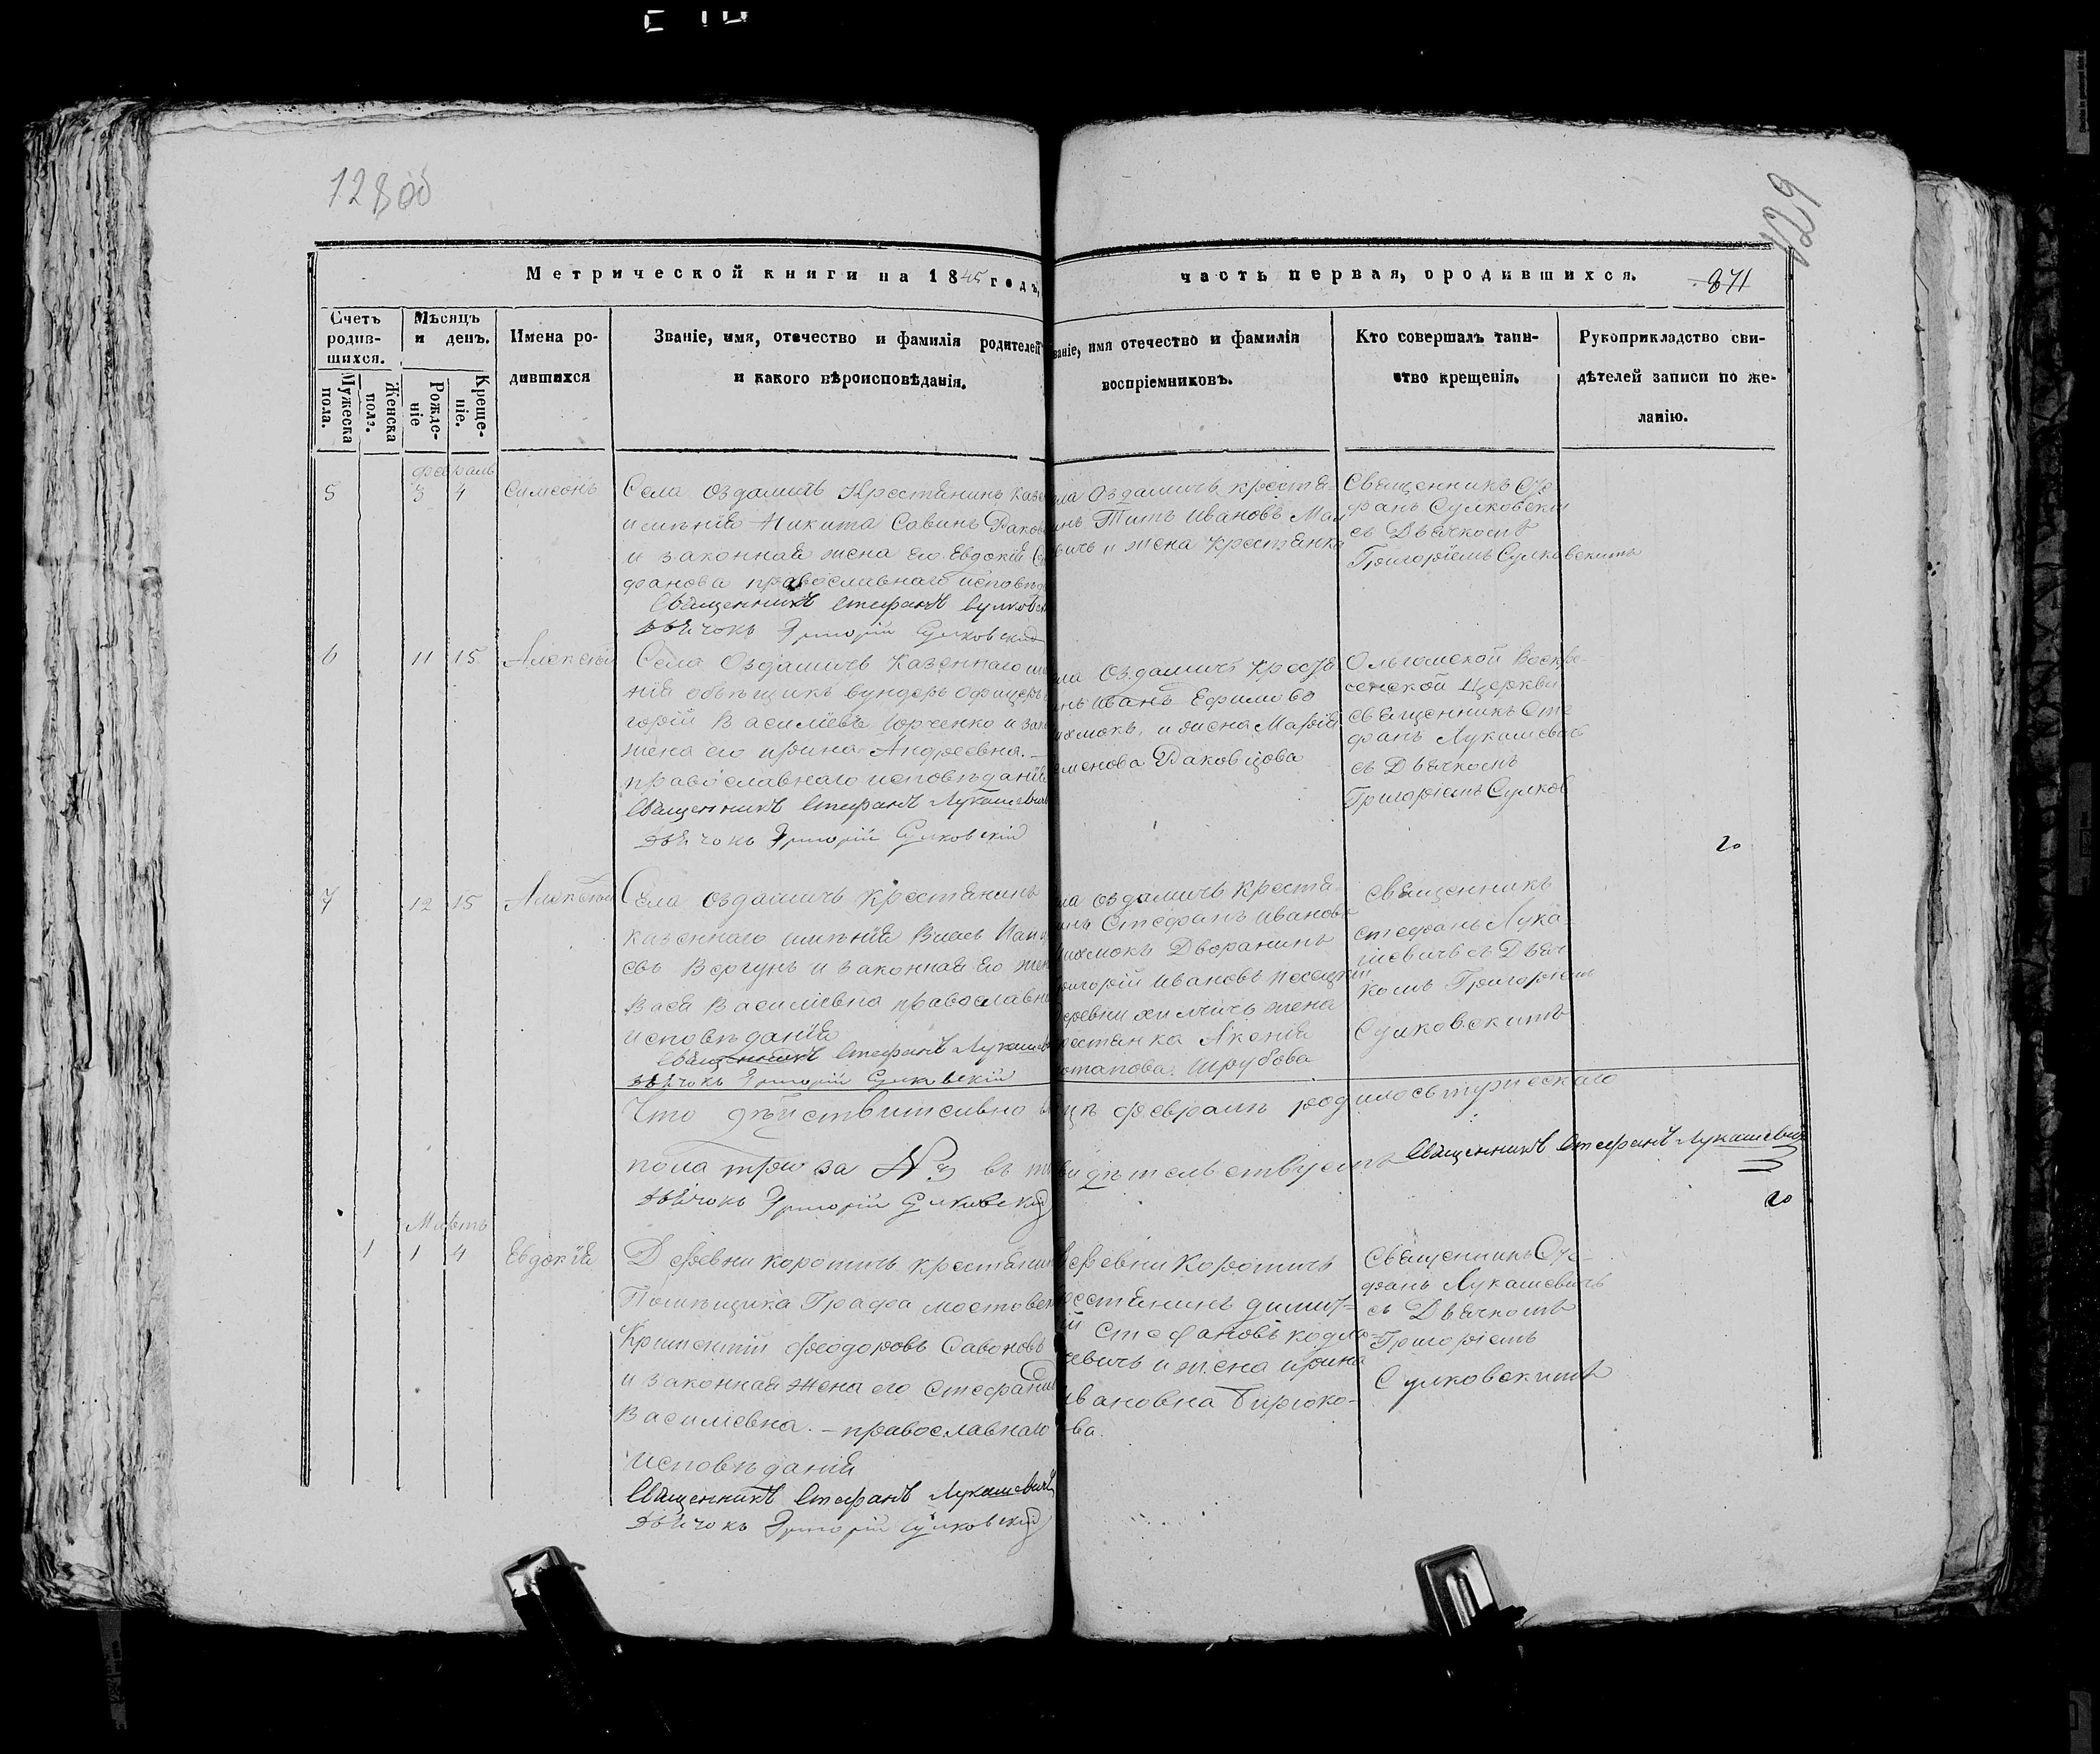 128об
129
Метрической книги на 1845 годъ,
часть первая, ородившихся.
871
Счетъ родив-шихся.
Мѣсяцъ и день.
Имена ро-
дившихся
Званіе, имя, отечество и фамилія родителей
и какого вѣроисповѣданія.
Мужеска пола.
Женска пола.
Рожде-ніе
Креще-ніе.
званіе, имя отечество и фамилія
воспріемниковъ.
Кто совершалъ таин-
ство крещенія.
Рукоприкладство сви-
дѣтелей записи по же-
ланію.
Февраль
5 3 4 Симеонъ
Села Оздамичъ Крестянинъ казе
имѣнія Никита Савинъ Раков
и законная жена его Евдокія С
фанова православнаго исповѣд
Священникъ Стефанъ Сулковск
Дьячокъ Григорій Сулковскій
ла Оздамичъ крестя-
инъ Титъ Ивановъ Мал
вичъ и жена крестянка
Священникъ Сте
фанъ Сулковскій
съ Дьячкомъ
Григоріемъ Сулковскимъ
6 11 15 Алексѣй
Села Оздамичъ Казеннаго им
нія объѣщикъ вундеръ офицеръ
горій Василіевъ Юрченко и зак
жена его Ирина Андреевна. –
православнаго исповѣданія
Священникъ Стефанъ Лукашевичъ
Дьячокъ Григорій Сулковскій
ла Оздамичъ Крестя
инъ Иванъ Ефимово
хмокъ, и жена Марія
еменова Раковцова
Ольгомской Воскре-
сенской Церкви
священникъ Сте
фанъ Лукашевичъ
съ Дьячкомъ
Григоріемъ Сулков
7 12 15 Алексѣй
Села Оздамичъ Крестянинъ
казеннаго имѣнія Власъ
евъ Вергунъ и законная его жен
Васа Василіевна православна
исповѣданія
Священникъ Стефанъ Лукашев
Дьячокъ Григорій Сулковскій
ла Оздамичъ Крестя-
инъ Стефанъ Ивановъ
ихмокъ Дворанинъ
ригорій Ивановъ
деревни Хилчичъ жена
рестянка Аксенія
отапова Шрубова
священникъ
стефанъ Лука-
шевичъ съ Дьяч
комъ Григоріемъ
Сулковскимъ
Что дѣйствительно в мцѣ февралѣ родилось мужескаго
пола три за № 3 въ видѣтельствуемъ Священникъ Стефанъ Лукашевичъ
Дьячокъ Григорій Сулковскій
Мартъ
1 1 4 Евдокія
Деревни Коротичъ крестянин
Помѣщика Графа мостовск
Феодоровъ Савоновъ
и законная жена его Стефани
Василіевна. – православнаго
исповѣданія
Священникъ Стефанъ Лукашевичъ
Дьячокъ Григорій Сулковскій
еревни Коротичъ
рестянинъ Димит-
ій Стефановъ Кодло-
евичъ и жена Ирина
Ивановна Бирюко-
ва.
Священникъ Сте-
фанъ Лукашевичъ
съ Дьячкомъ
Григоріемъ
Сулковскимъ